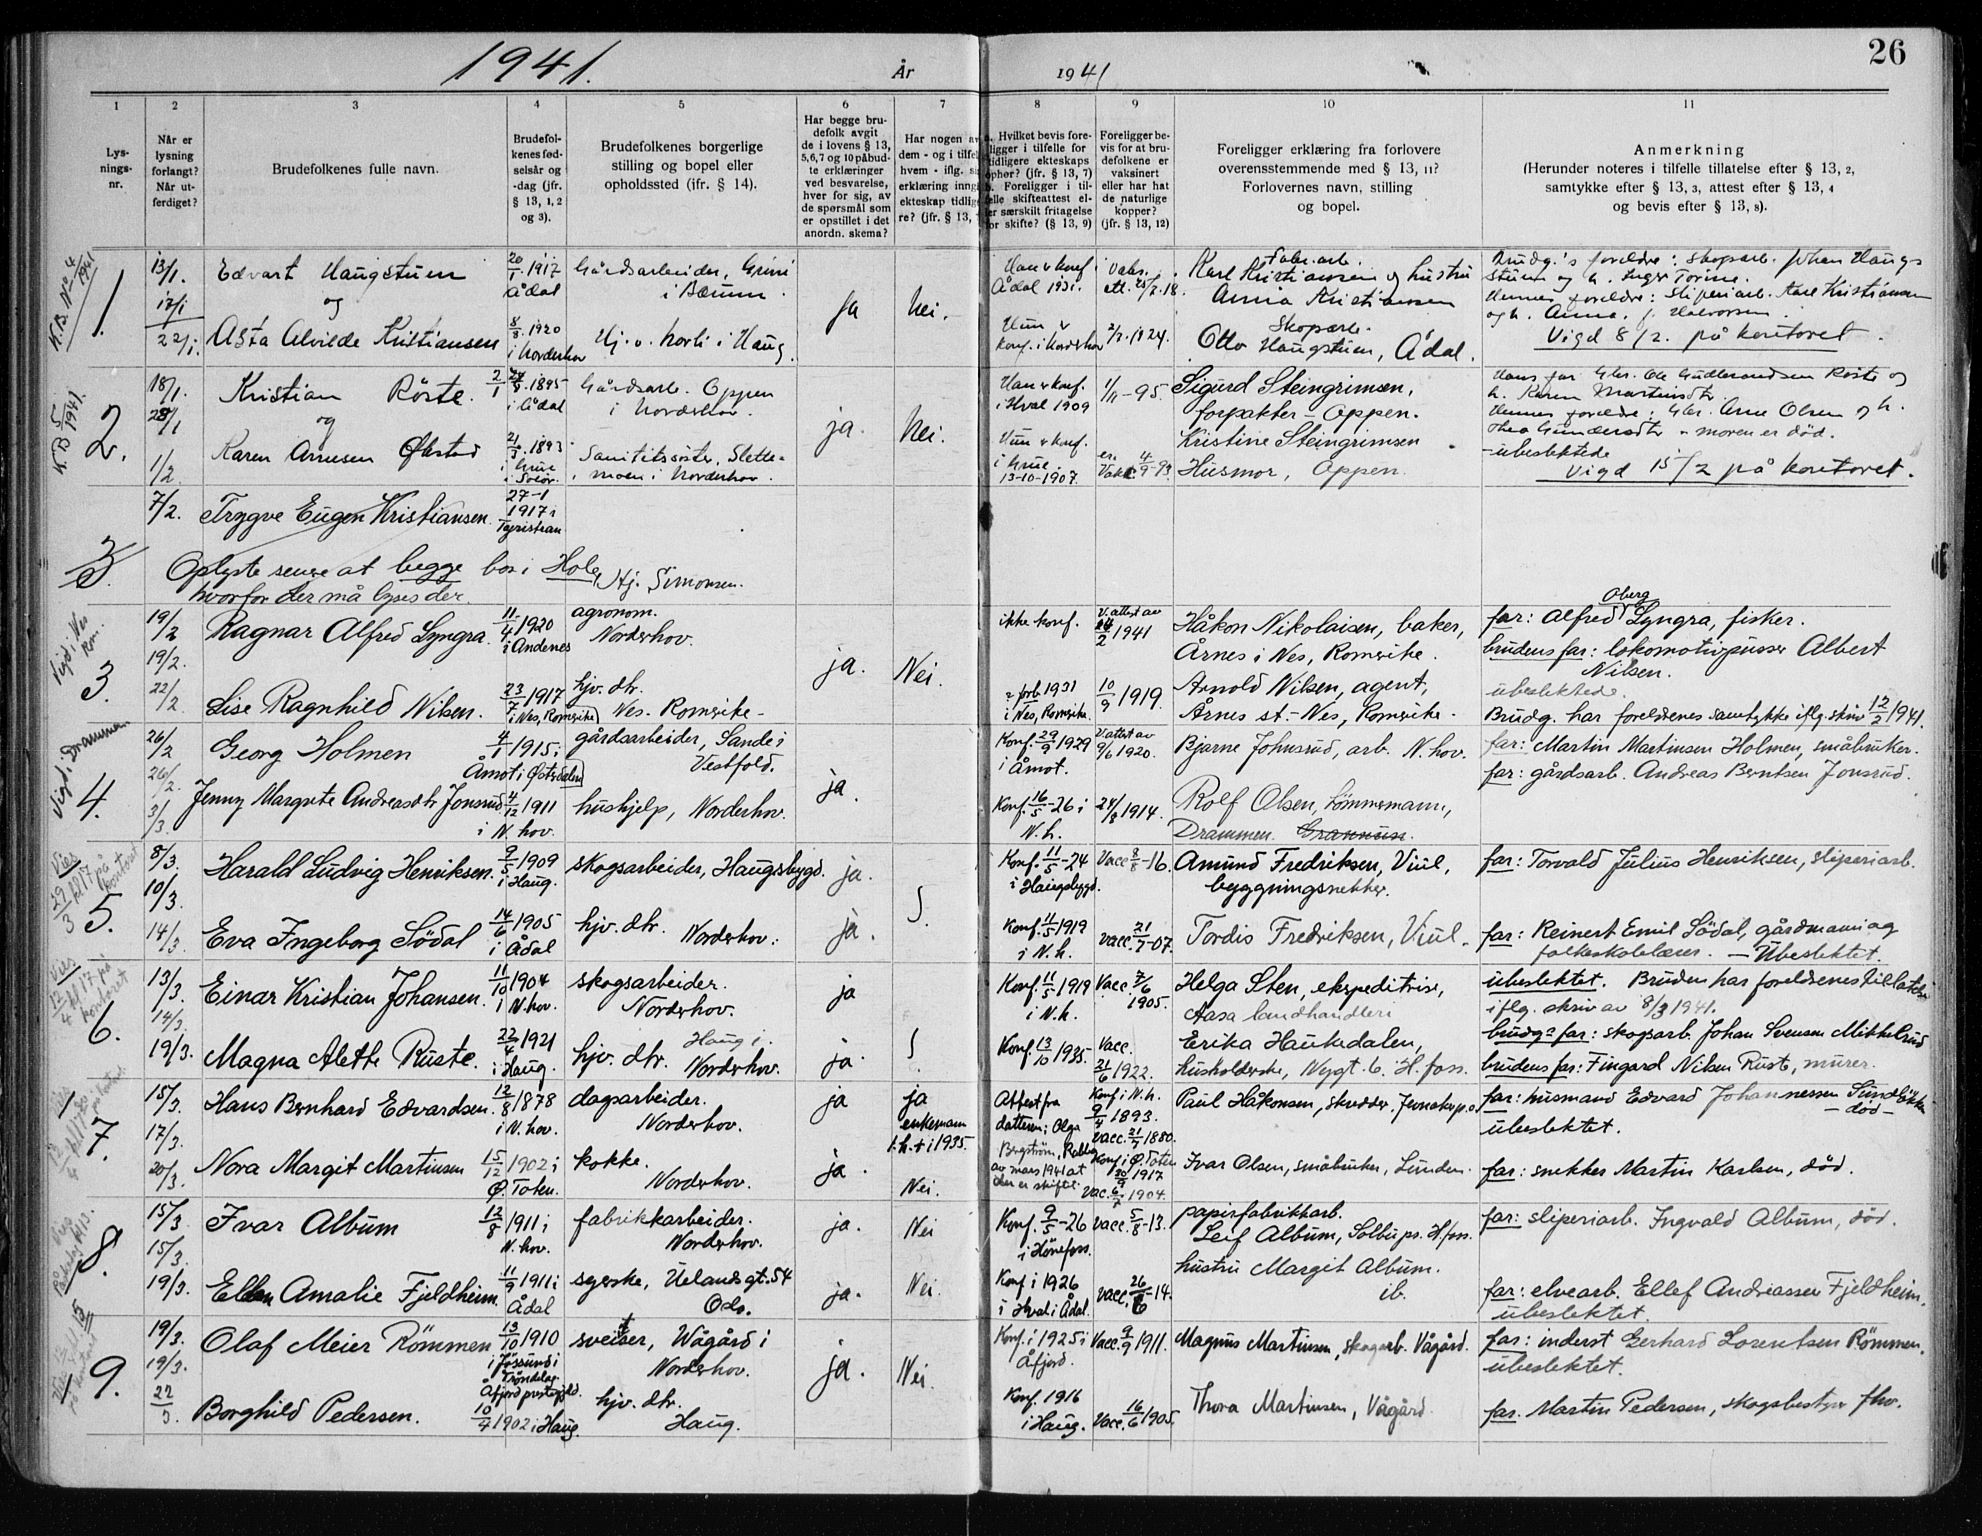 1941.
År
1941
26
1
2
3
4
5
6
7
8
9
10
11
Lys-
nings-
nr.
Når er
lysning
forlangt?
Når ut-
ferdiget?
Brudefolkenes fulle navn.
Brudefol-
kenes fød-
selsår og
-dag (jfr.
§ 13, 1, 2
og 3).
Brudefolkenes borgerlige
stilling og bopel eller
opholdssted (jfr. § 14).
Har begge bru-
defolk avgit
de i lovens § 13,
5,6,7 og 10 påbud-
te erklæringer
ved besvarelse,
hver for sig, av
de spørsmål som
er opstillet i det
anordn. skema?
Har nogen av
dem - og i tilfel
hvem - iflg. s
erklæring inng
ekteskap tidlig
re? (jfr. § 13,
Hvilket bevis fore-
ligger i tilfelle for
tidligere ekteskaps
ophør? (jfr. § 13, 7)
Foreligger i til-
felle skifteattest el-
ler særskilt fritagelse
for skifte? (§ 13, 9)
Foreligger be-
vis for at bru-
defolkene er
vaksinert
eller har hat
de naturlige
kopper?
(jfr. § 13, 12)
Foreligger erklæring fra forlovere
overensstemmende med § 13, 11?
Forlovernes navn, stilling
og bopel.
Anmerkning
(Herunder noteres i tilfelle tillatelse efter § 13, 2,
samtykke efter § 13, 3, attest efter § 13, 4
og bevis efter § 13, 8).
K.B. Nº 4 1941
1.
13/1.
17/1
22/1.
Edvart Haugstuen
og
Asta Alvilde Kristiansen
20/1. 1917
Ådal
8/8. 1920
i Norderhov
Gårdsarbeider, Grini
i Bærum.
Hj. v. mor i Haug.
Ja
Nei.
Han v konf. i
Ådal 1931.
Hun v
konf. i Norderhov
2/7. 1924.
Fabr. arb.
Karl Kristiansen og hustru
Anna Kristiansen
Skoparb.
Otto Haugstuen, Ådal.
Brudg.'s foreldre: skoparb. Johan Haug-
stuen og h. Inger Torine.
Hennes foreldre: Sliperiarb. Karl Kristiansen
og h. Anna, f. Halvorsen.
Vigd 8/2. på kontoret.
K.B 5 1941.
2.
18/1.
28/1
1/2.
Kristian Röste.
og
Karen Arnesen Økstad
1895
i Ådal
21/3. 1893
i Grue
i Solør.
Gårdsarb. Oppen
i Norderhov.
Sanitetssöster, Slette-
moen i Norderhov.
ja.
Nei.
Han v konf.
i Hval 1909
Hun v konf.
i Grue
13-10-1907.
1/11-95.
4/9-93
Sigurd Steingrimsen,
forpakter - Oppen.
Kristine Steingrimsen
Husmor, Oppen.
Hans far Gbr. Ole Gudbrandsen Röste og
h. Karen Martinsdtr
Hennes foreldre: Gbr. Arne Olsen og h.
Thea Gundersdtr - moren er død.
- ubeslektede
Vigd 15/2 på kontoret.
3.
7/2.
Trygve Eugen Kristiansen.
27-1
1917 i
Tyristran
Oplyste senere at begge bor i Hole,
hvorfor der må lyses der.
Hj. Simonsen.
Vigd i Nes
Rom.
3.
19/2
19/2.
22/2
Ragnar Alfred Lyngra.
Lise Ragnhild Nilsen.
11/4 1920
i Andenes
23/7 1917
i Nes, Romerike
agronom.
Norderhov.
hjv. dtr.
Nes. Romerike -
ja.
Nei.
ikke konf.
forb. 1931
i Nes, Romerike.
V. attest av
14/2 1941
10/9 1919.
Håkon Nikolaisen, baker,
Årnes i Nes, Romerike.
Arnold Nilsen, agent,
Årnes st. - Nes, Romerike.
Oberg
far: Alfred Lyngra, fisker.
brudens far: lokomotivpusser Albert
Nilsen.
ubeslektede.
Brudg. har foreldrenes samtykke iflg. skriv 12/2 1941.
Vigd i Drammen
4.
26/2
26/2.
3/3.
Georg Holmen
Jenny Margrete Andreasdtr Jonsrud
4/1 1915 i
Åmot i Østerdalen
4/12 1911
i N. hov.
gårdsarbeider, Sande i
Vestfold.
hushjelp, Norderhov.
ja.
Konf. 29/9 1929
i Åmot.
Konf. 16/5-26 i
N. h.
V. attest av
9/6 1920.
24/8 1914.
Bjarne Johnsrud, arb. N. hov.
Rolf Olsen, tömmermann,
Drammen.
far: Martin Martinsen Holmen, småbruker.
far: gårdsarb. Andreas Berntsen Jonsrud.
Vies
29/3 kl 17 på
kontoret
5.
8/3.
10/3.
14/3.
Harald Ludvig Henriksen.
Eva Ingeborg Södal
9/5 1909
i Haug.
14/6 1905
i Ådal
skogsarbeider, Haugsbygd.
hjv. dtr.
Norderhov.
ja.
ja.
Konf. 11/5-24
i Haugsbygd.
Konf. 11/5 1919
i N. h.
Vacc 8/8-16.
vacc. 21/7-07.
Amund Fredriksen, Viul,
byggningsnekker.
Tordis Fredriksen, Viul.
far: Torvald Julius Henriksen, sliperiarb.
far: Reinert Emil Södal, gårdmann og
folkeskolelærer. - Ubeslektet.
Vies
12/4 kl 17 på
kontoret
6.
13/3.
14/3.
19/3.
Einar Kristian Johansen.
Magna Alette Ruste.
11/10 1904
i N. hov.
22/4 1921
i Haug.
skogsarbeider.
Norderhov.
hjv. dtr.
Haug i
Norderhov.
ja
ja.
Konf. 11/5 1919
i N. h.
Konf. 13/10 1935.
Vacc. 7/6
1905.
Vacc.
21/6 1922.
Helga Sten, ekspeditrise,
Aasa landhandleri
Erika Haukedalen,
husholderske, Nygt. 6. H. foss.
ubeslektet. Bruden har foreldrenes tillatelse
iflg. skriv av 8/3 1941.
brudgs far: skogsarb. Johan Svensen Mikkelsrud
brudens far: Fingard Nilsen Rust, murer.
7.
15/3.
17/3.
20/3.
Hans Bernhard Edvardsen.
Nora Margit Martinsen
12/8 1878
i N. hov.
15/12 1902 i
Ø. Toten.
dagsarbeider.
Norderhov.
kokke.
Norderhov.
ja
ja.
ja
enkemann
1. h. + i 1935
Nei.
Attest fra
datteren: Olga
Bergström,
av mars 1941 at
der er skiftet.
Konf. i N. h.
9/4 1893.
vacc. 21/7 1880.
Konf. i Ø. Toten
30/9 1917
vac. 6/7 1904.
Paul Håkonsen, skredder, Jevnaker p.o
Ivar Olsen, småbruker, Linden.
far: husmand Edvard Johannessen Sundlökka
- död -
ubeslektet.
far: snekker Martin Karlsen, död.
8.
15/3
15/3.
19/3.
Ivar Album
Ellen Amalie Fjeldheim.
12/8 1911 i
N. hov.
11/9 1911 i
Ådal
fabrikkarbeider.
Norderhov.
syerske, Uelandsgt. 54
Oslo.
ja.
ja.
Nei
Nei.
Konf. 9/5-26
i Hönefoss.
Konf i 1926
i Hval i Ådal.
vacc. 5/8-13.
vacc. 26/6-14.
papirfabrikkarb.
Leif Album, Solbu ps. H. foss.
hustru Margit Album.
ib.
far: sliperiarb. Ingvald Album, död.
far: elvearb. Ellef Andreassen Fjeldheim.
ubeslektet.
9.
19/3.
19/3.
22/3.
Olaf Meier Römmen
Borghild Pedersen.
13/10 1910
i Jössund i
Tröndelag.
Åfjord prestegjeld.
10/4 1902 i Haug.
sveiser, Wågård i
Norderhov.
hjv. dtr.
Haug.
ja.
Nei.
Konf. i 1925 i
Åfjord.
Konf. 1916
i Haug.
Vacc. 9/9 1911.
Vacc. 16/6 1905.
Magnus Martinsen, skogarb. Vågård.
Thora Martinsen, Vågård.
far: inderst Gerhard Lorentsen Römmen.
ubeslektet.
far. Martin Pedersen, skogsbestyrer fhv.